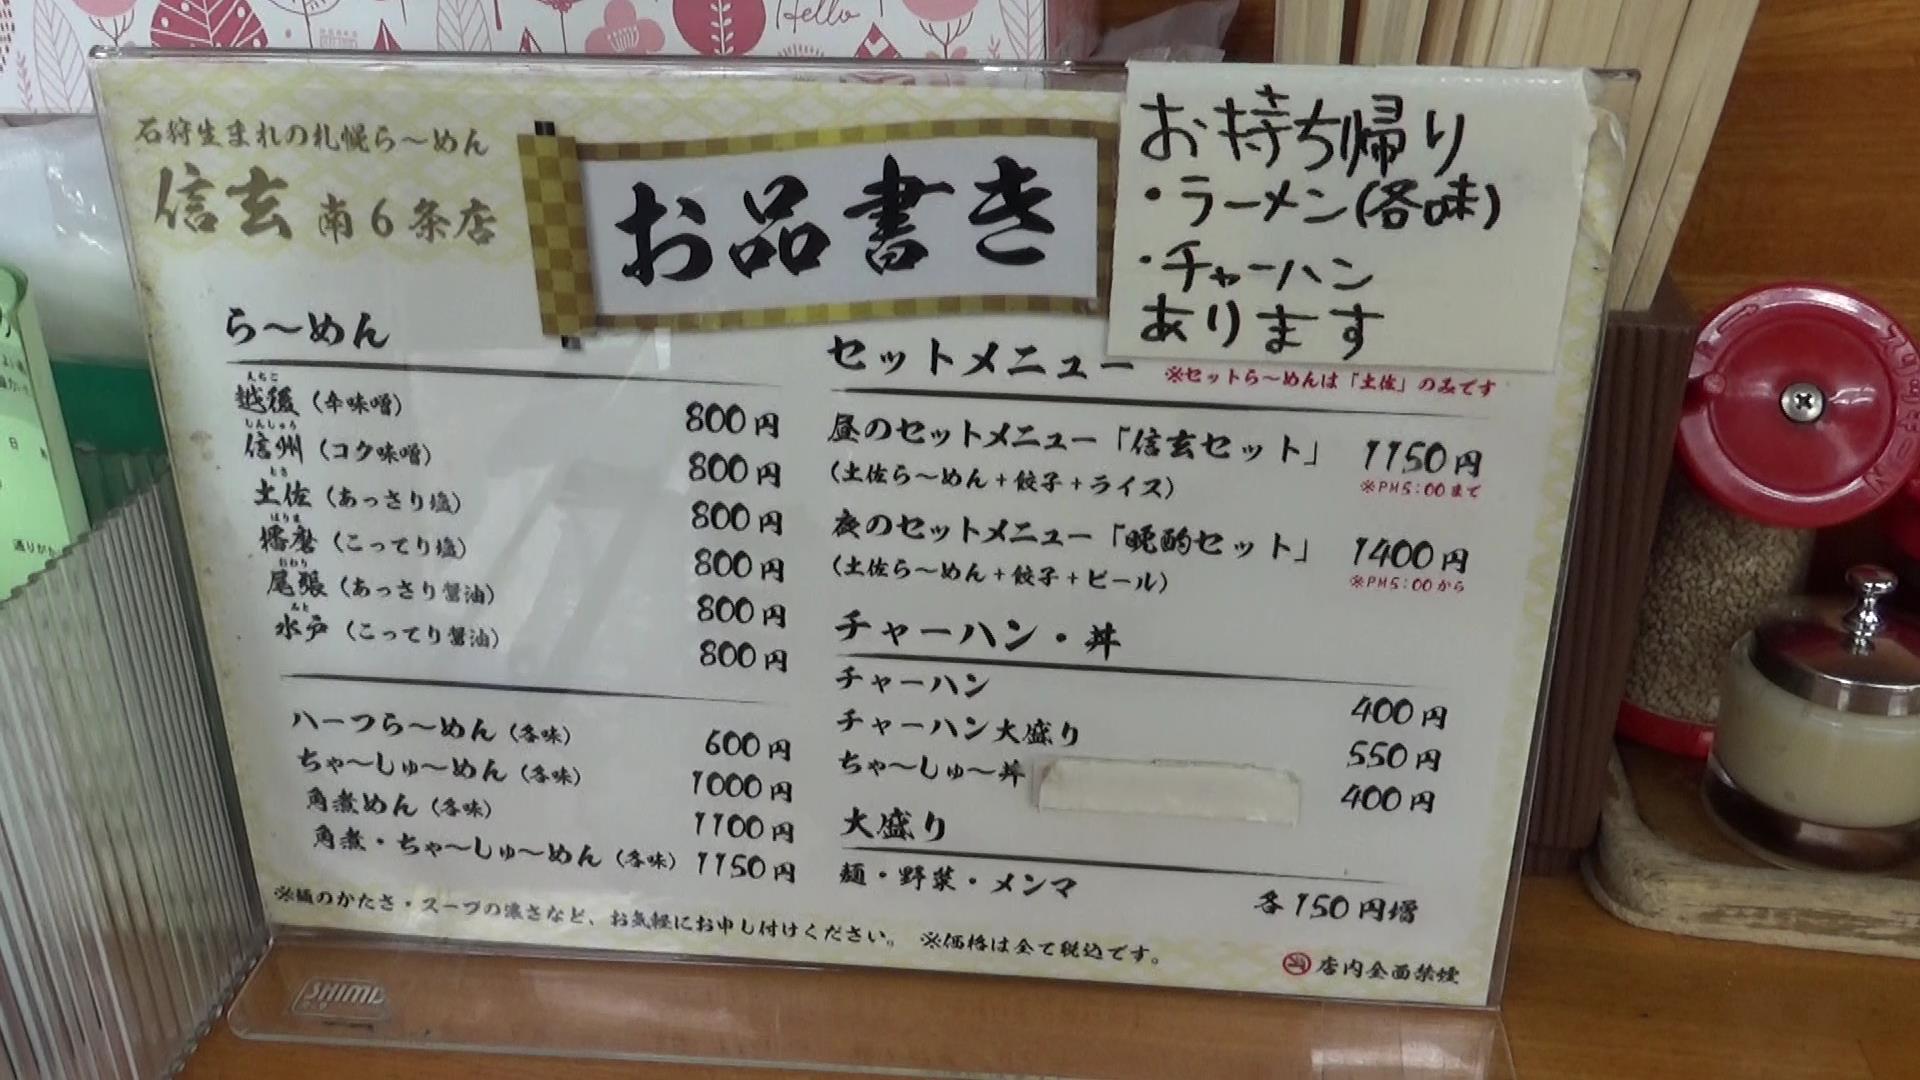 Hello
石狩生まれの札幌ら〜めん
信玄 南6条店
お品書き
お持ち帰り
・ラーメン(各味)
・チャーハン
あります
ら〜めん
えちご
越後（辛味噌） 800円
しんしゅう
信州（コク味噌） 800円
とさ
土佐（あっさり塩） 800円
はりま
播磨（こってり塩） 800円
おわり
尾張（あっさり醤油） 800円
みと
水戸（こってり醤油） 800円
ハーフら〜めん（各味） 600円
ちゃ〜しゅ〜めん（各味） 1000円
角煮めん（各味） 1100円
角煮・ちゃ〜しゅ〜めん（各味） 1150円
セットメニュー ※セットら〜めんは「土佐」のみです
昼のセットメニュー「信玄セット」 1150円
（土佐ら〜めん＋餃子＋ライス） ※PM5:00まで
夜のセットメニュー「晩酌セット」 1400円
（土佐ら〜めん＋餃子＋ビール） ※PM5:00から
チャーハン・丼
チャーハン 400円
チャーハン大盛り 550円
ちゃ〜しゅ〜丼 400円
大盛り
麺・野菜・メンマ 各150円増
※麺のかたさ・スープの濃さなど、お気軽にお申し付けください。 ※価格は全て税込です。
店内全面禁煙
SHIMA